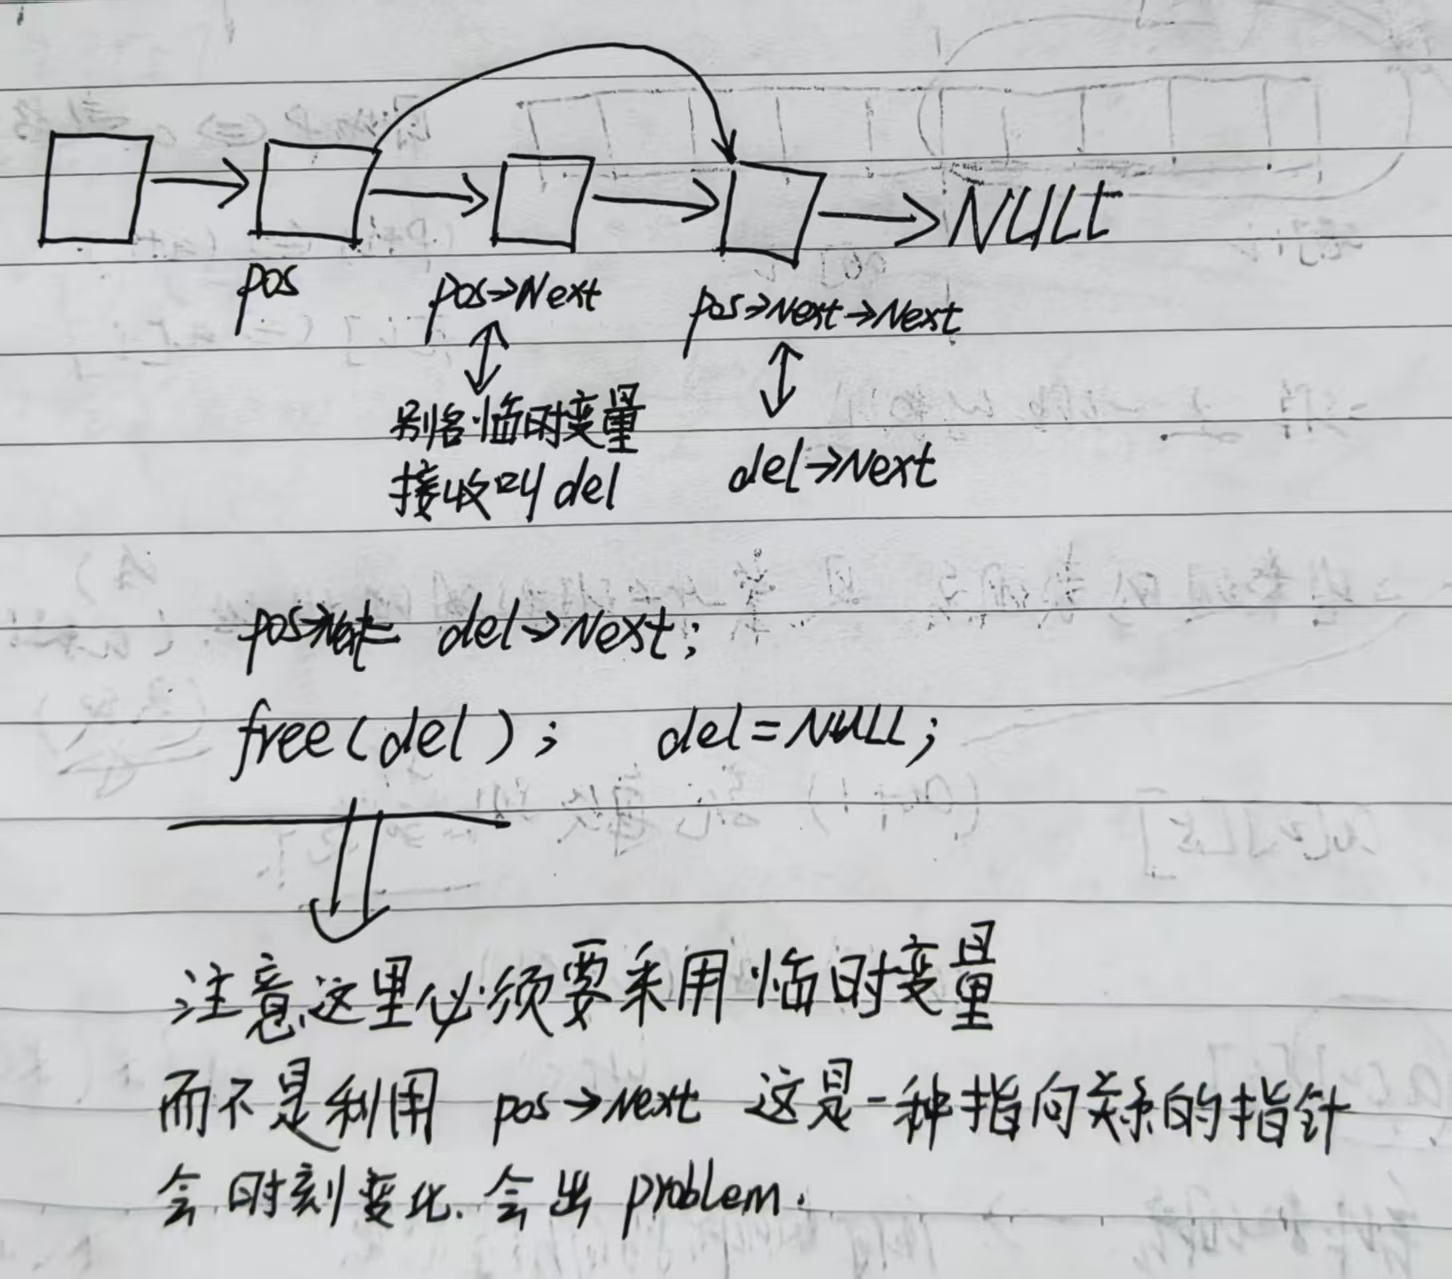 NULL
pos
pos→Next
pos→Next→Next
别名临时变量
接收叫del
del→Next
pos→Next= del→Next;
free(del); del=NULL;
注意这里必须要采用临时变量
而不是利用 pos→Next 这是一种指向关系的指针
会时刻变化.会出problem.